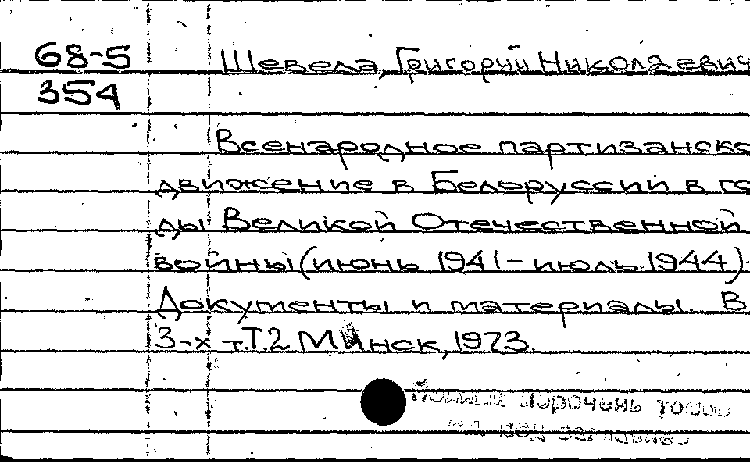 68-5 Шевела, Григорий Николаевич
354
Всенародное партизанско
движение в Белоруссии в го
ды Великой Отечественной
войны (июнь 1941 - июль 1944).
Документы и материалы. В
3-х т. Т.2. Минск, 1973.